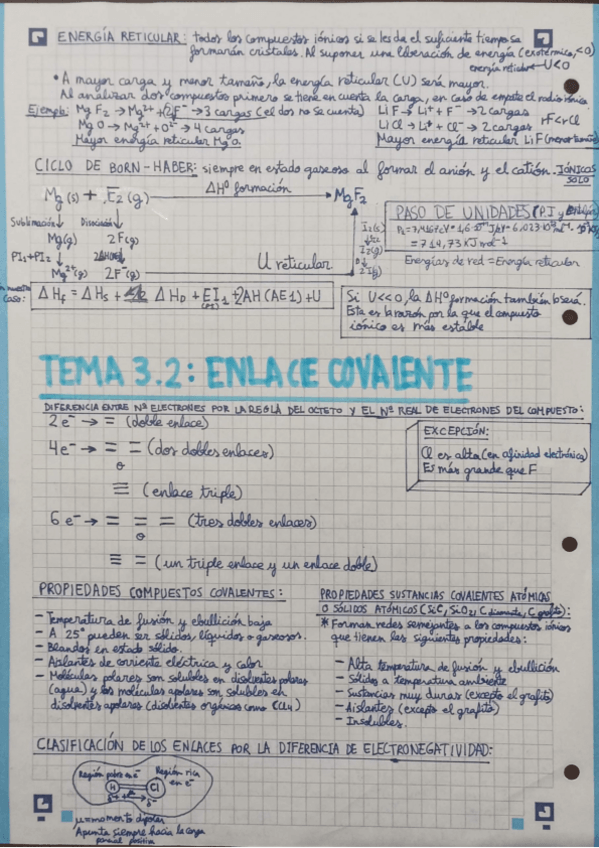 ENERGÍA RETICULAR: todos los compuestos iónicos si se les da el suficiente tiempo se
formarán cristales. Al suponer una liberación de energía (exotérmica, <0)
energía reticular → U<0
• A mayor carga y menor tamaño, la energía reticular (U) será mayor.
Al analizar dos compuestos primero se tiene en cuenta la carga, en caso de empate el radio iónico.
Ejemplo: MgF2 → Mg2+ + 2F- → 3 cargas (el dos no se cuenta)
MgO → Mg2+ + O2- → 4 cargas
Mayor energía reticular MgO.
LiF → Li+ + F- → 2 cargas
LiCl → Li+ + Cl- → 2 cargas
rF<rCl
Mayor energía reticular LiF (menor tamaño)
CICLO DE BORN-HABER: siempre en estado gaseoso al formar el anión y el catión. IÓNICOS
SOLO
Mg(s) + F2(g) ΔHº formación MgF2
Sublimación Disociación
Mg(g) 2F(g)
PI1+PI2
Mg2+(g) 2F-(g) U reticular
I2(s)
I2(g)
2I(g)
PASO DE UNIDADES (P.I y
= 714,73 KJ mol-1
Energías de red = Energía reticular
caso: ΔHf = ΔHs + ΔHD + EI1 + 2AH(AE1) + U
Si U<<0, la ΔHº formación también lo será.
Esta es la razón por la que el compuesto
iónico es más estable
TEMA 3.2: ENLACE COVALENTE
DIFERENCIA ENTRE Nº ELECTRONES POR LA REGLA DEL OCTETO Y EL Nº REAL DE ELECTRONES DEL COMPUESTO:
2e- → = (doble enlace)
4e- → = = (dos dobles enlaces)
o
≡ (enlace triple)
6e- → = = = (tres dobles enlaces)
o
≡ = (un triple enlace y un enlace doble)
EXCEPCIÓN:
Cl es alta (en afinidad electrónica)
Es más grande que F
PROPIEDADES COMPUESTOS COVALENTES:
- Temperatura de fusión y ebullición baja
- A 25º pueden ser sólidos, líquidos o gaseosos.
- Blandos en estado sólido.
- Aislantes de corriente eléctrica y calor
- Moléculas polares son solubles en disolventes polares
(agua) y las moléculas apolares son solubles en
disolventes apolares (disolventes orgánicos como CCl4)
PROPIEDADES SUSTANCIAS COVALENTES ATÓMICAS
O SÓLIDOS ATÓMICOS (SiC, SiO2, C diamante, C grafito):
* Forman redes semejantes a los compuestos iónicos
que tienen las siguientes propiedades:
- Alta temperatura de fusión y ebullición
- Sólidos a temperatura ambiente
- Sustancias muy duras (excepto el grafito)
- Aislantes (excepto el grafito)
- Insolubles.
CLASIFICACIÓN DE LOS ENLACES POR LA DIFERENCIA DE ELECTRONEGATIVIDAD:
Región pobre en e- Región rica
en e-
H Cl
δ+ δ-
μ=momento dipolar
Apunta siempre hacia la carga
parcial positiva